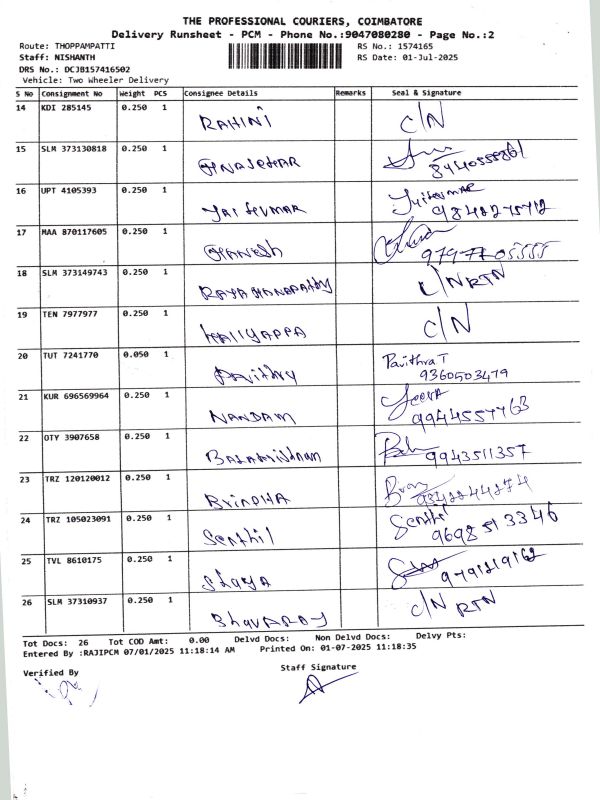 THE PROFESSIONAL COURIERS, COIMBATORE
Delivery Runsheet - PCM - Phone No.:9047080280 - Page No.:2
Route: THOPPAMPATTI RS No.: 1574165
Staff: NISHANTH RS Date: 01-Jul-2025
DRS No.: DCJB157416502
Vehicle: Two Wheeler Delivery
S No Consignment No Weight PCS Consignee Details Remarks Seal & Signature
14 KDI 285145 0.250 1 RAHINI C/N
15 SLM 373130818 0.250 1
16 UPT 4105393 0.250 1 JAI KUMAR 9842275712
17 MAA 870117605 0.250 1 GANESH
18 SLM 373149743 0.250 1 C/N RTN
19 TEN 7977977 0.250 1 C/N
20 TUT 7241770 0.050 1 Pavithra T
9360503479
21 KUR 696569964 0.250 1 NANDAM Jeeva
9944557763
22 OTY 3907658 0.250 1 9943511357
23 TRZ 120120012 0.250 1 BRINDHA
24 TRZ 105023091 0.250 1 Senthil
9698513346
25 TVL 8610175 0.250 1
26 SLM 37310937 0.250 1 C/N RTN
Tot Docs: 26 Tot COD Amt: 0.00 Delvd Docs: Non Delvd Docs: Delvy Pts:
Entered By :RAJIPCM 07/01/2025 11:18:14 AM Printed On: 01-07-2025 11:18:35
Verified By Staff Signature